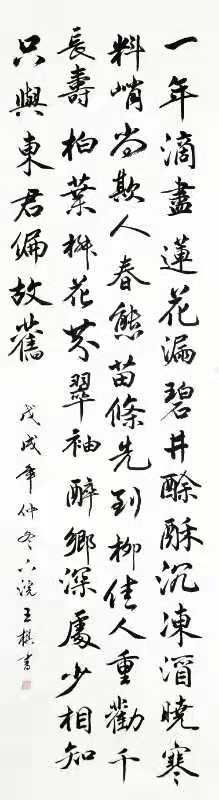 一年滴盡蓮花漏碧井酴酥沉凍酒曉寒
料峭尚欺人春態苗條先到柳佳人重勸千
長壽柏葉椒花芬翠袖醉鄉深處少相知
只與東君偏故舊
戊戌年仲冬下浣王棋書